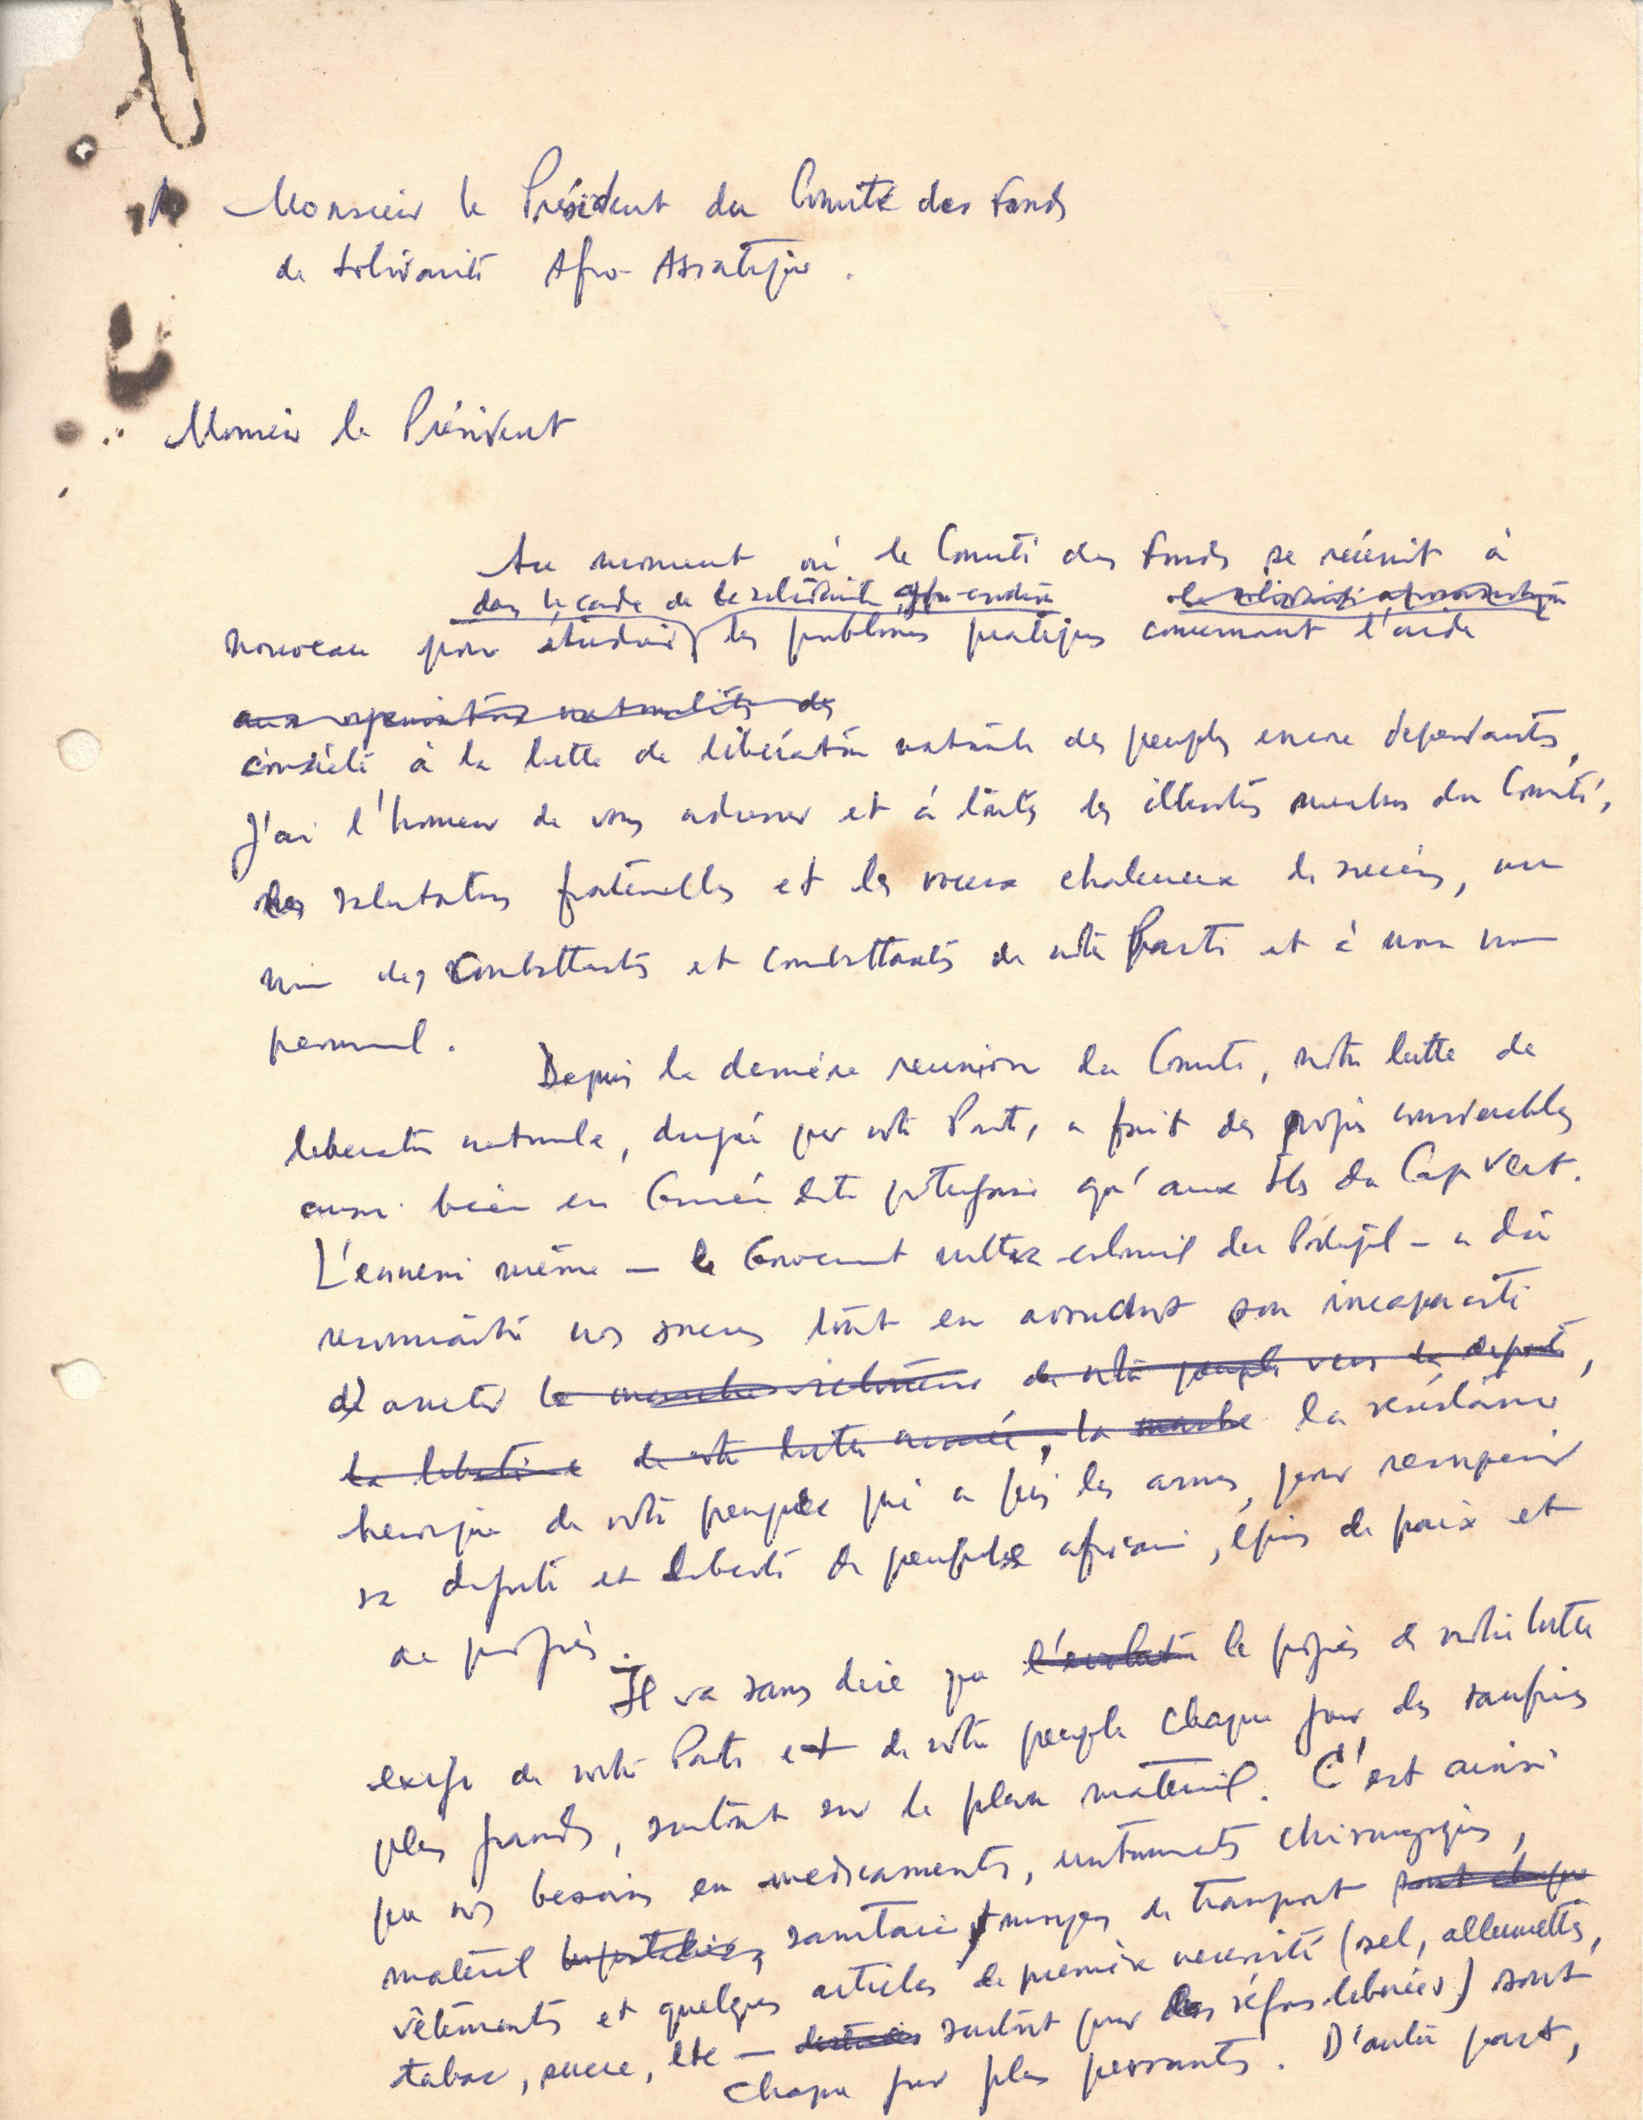 A Monsieur le Président du Comité des Fonds
de Solidarité Afro-Asiatique.
Monsieur le Président
Au moment où le Comité des Fonds se réunit à
dans le cadre de la solidarité afro-asiatique de la solidarité afroasiatique
nouveau pour étudier les problèmes pratiques concernant l'aide
aux organisations nationalistes des
concrète à la lutte de libération nationale des peuples encore dépendants,
j'ai l'honneur de vous adresser et à toutes les illustres membres du Comité,
les salutations fraternelles et les voeux chaleureux de succès, au
nom des combattants et combattantes de notre Parti et à mon nom
personnel.
Depuis la dernière reunion du Comité, notre lutte de
liberation nationale, dirigée par notre Parti, a fait des progrès considerables
aussi bien en Guinée dite portugaise qu'aux Iles du Cap Vert.
L'ennemi même — le Gouvernement ultra-colonial du Portugal — a dû
reconnaître nos succès tout en son incapacité
d'arreter la marche victorieuse de notre peuple vers la dignité,
la libération de notre lutte armée, la marche la résistance
heroique de notre peuple qui a pris les armes, pour recuperer
sa dignité et liberté de peuple africain, épris de paix et
de progrès.
Il va sans dire que l'evolution le progrès de notre lutte
exige de notre Parti et de notre peuple chaque jour des sacrifices
plus grands, surtout sur le plan materiel. C'est ainsi
que nos besoins en medicaments, instruments chirurgiques,
matériel sanitaire, moyens de transport sont chaque
vêtements et quelques articles de première necessité (sel, allumettes,
tabac, sucre, etc — destinés surtout pour les régions liberées) sont
chaque jour plus pressants. D'autre part,